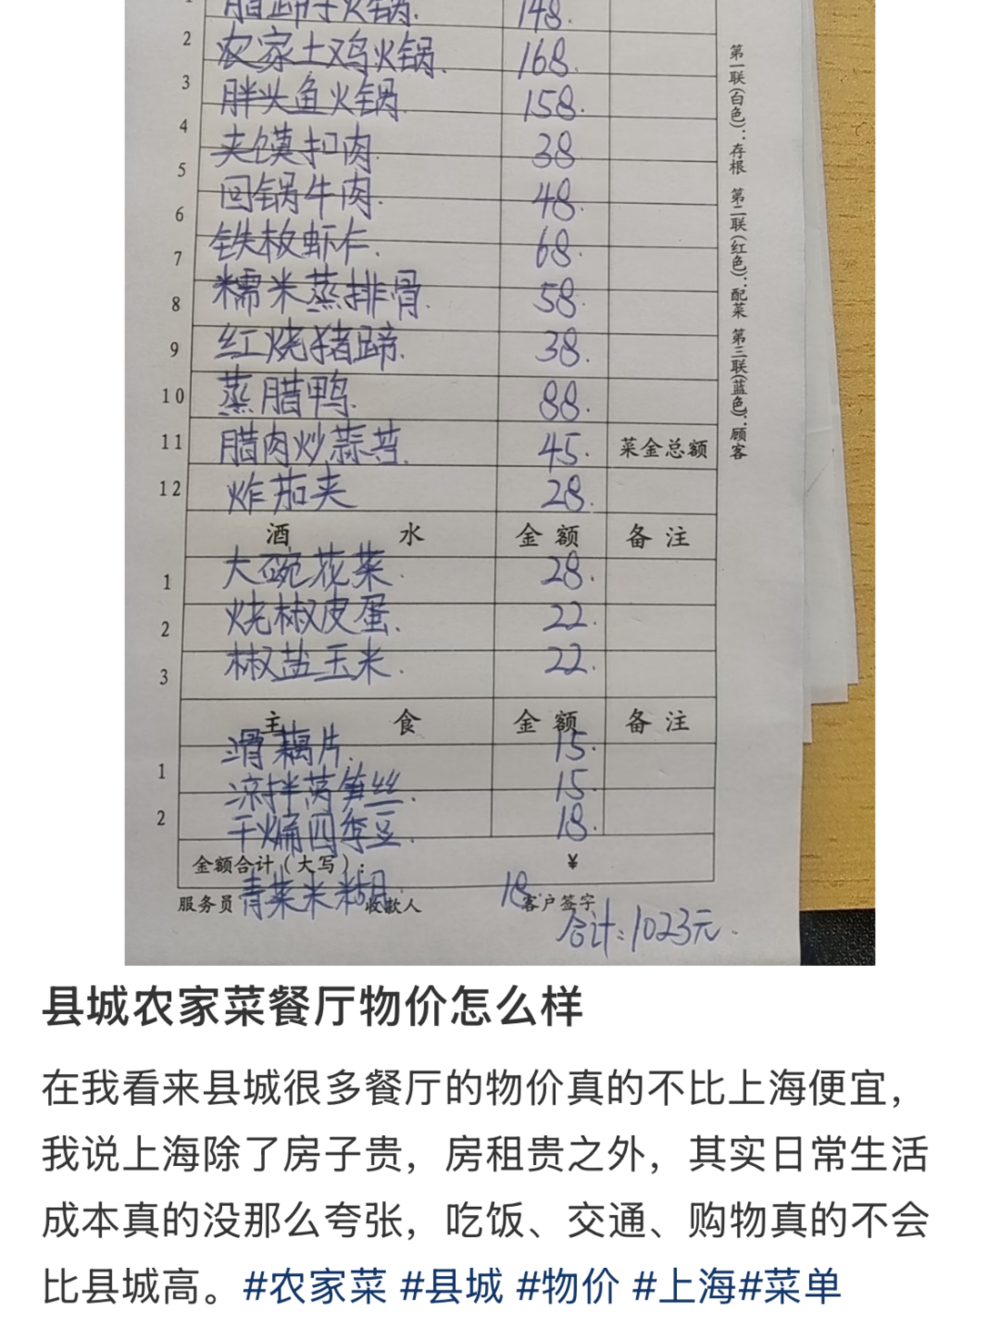 腊蹄子火锅. 148.
2 农家土鸡火锅. 168.
3 胖头鱼火锅. 158.
4 夹馍扣肉. 38
5 回锅牛肉. 48.
6 铁板虾仁. 68.
7 糯米蒸排骨. 58.
8 红烧猪蹄. 38.
9 蒸腊鸭. 88.
10 腊肉炒蒜苔. 45.
11 菜金总额
12 炸茄夹 28.
酒 水 金 额 备 注
1 大碗花菜. 28.
2 烧椒皮蛋. 22.
3 椒盐玉米. 22.
主 食 金 额 备 注
滑藕片. 15.
1 凉拌莴笋丝. 15.
2 干煸四季豆. 18.
金额合计(大写): ¥
青菜米糊. 18.
服务员 收款人 客户签字
合计:1023元.
第一联(白色):存根 第二联(红色):配菜 第三联(蓝色):顾客
县城农家菜餐厅物价怎么样
在我看来县城很多餐厅的物价真的不比上海便宜，
我说上海除了房子贵，房租贵之外，其实日常生活
成本真的没那么夸张，吃饭、交通、购物真的不会
比县城高。#农家菜 #县城 #物价 #上海#菜单